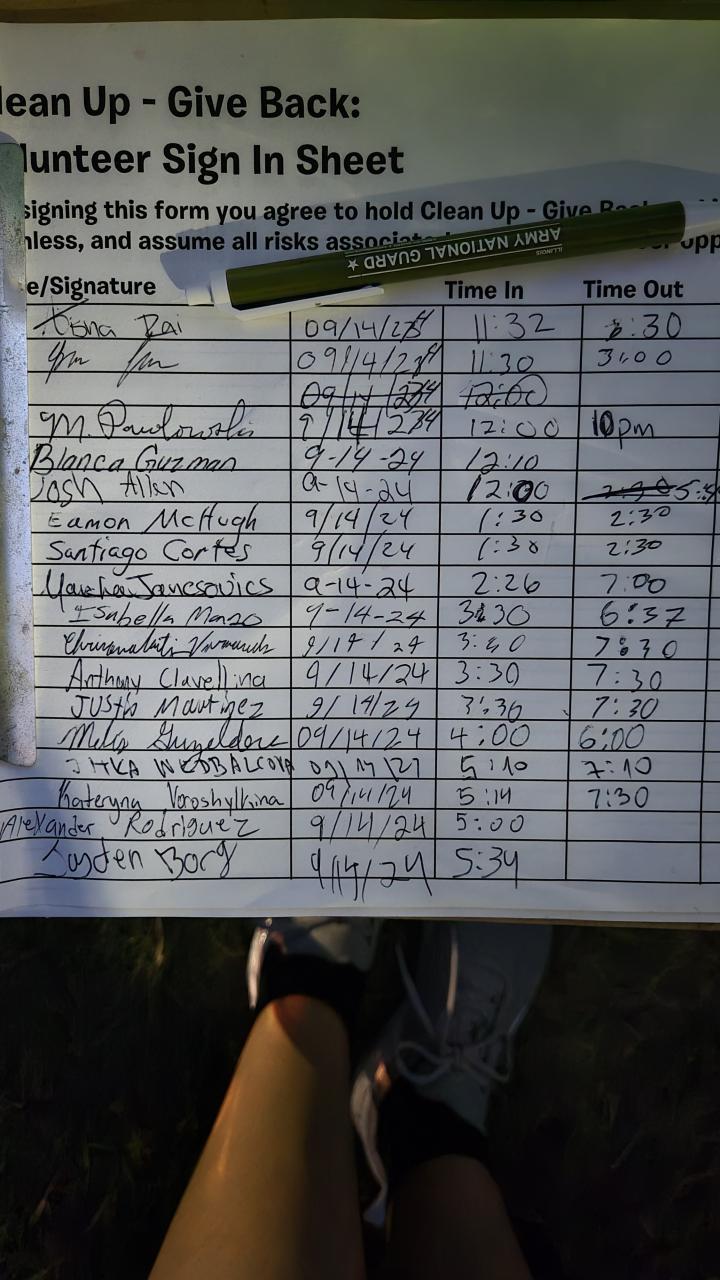 lean Up - Give Back:
lunteer Sign In Sheet
signing this form you agree to hold Clean Up - Give
nless, and assume all risks
ILLINOIS
ARMY NATIONAL GUARD
e/Signature Time In Time Out
Rai 09/14/24 11:32 :30
09/14/24 11:30 3:00
09/14/24 12:00
M. Pawlowski 9/14/24 12:00 10pm
Blanca Guzman 9-14-24 12:10
Josh Allen 9-14-24 12:00
Eamon McHugh 9/14/24 1:30 2:30
Santiago Cortes 9/14/24 1:30 2:30
Jancsovics 9-14-24 2:26 7:00
Isabella 9-14-24 3:30 6:37
9/14/24 7:30
Anthony Clavellina 9/14/24 3:30 7:30
Justin Martinez 9/14/24 3:30 7:30
09/14/24 4:00 6:00
5:10 7:10
Kateryna Voroshylkina 09/14/24 5:14 7:30
Alexander Rodriguez 9/14/24 5:00
Borg 9/14/24 5:34